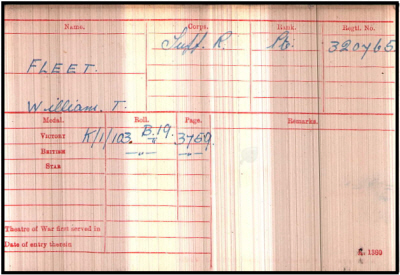 Name. Corps. Rank. Regtl. No.
FLEET. Suff. R. Pte. 320465
William. T.
Medal. Roll. Page. Remarks.
VICTORY K/1/103. B.19. 3759.
BRITISH —„— —„—
STAR
Theatre of War first served in
Date of entry therein
K. 1380